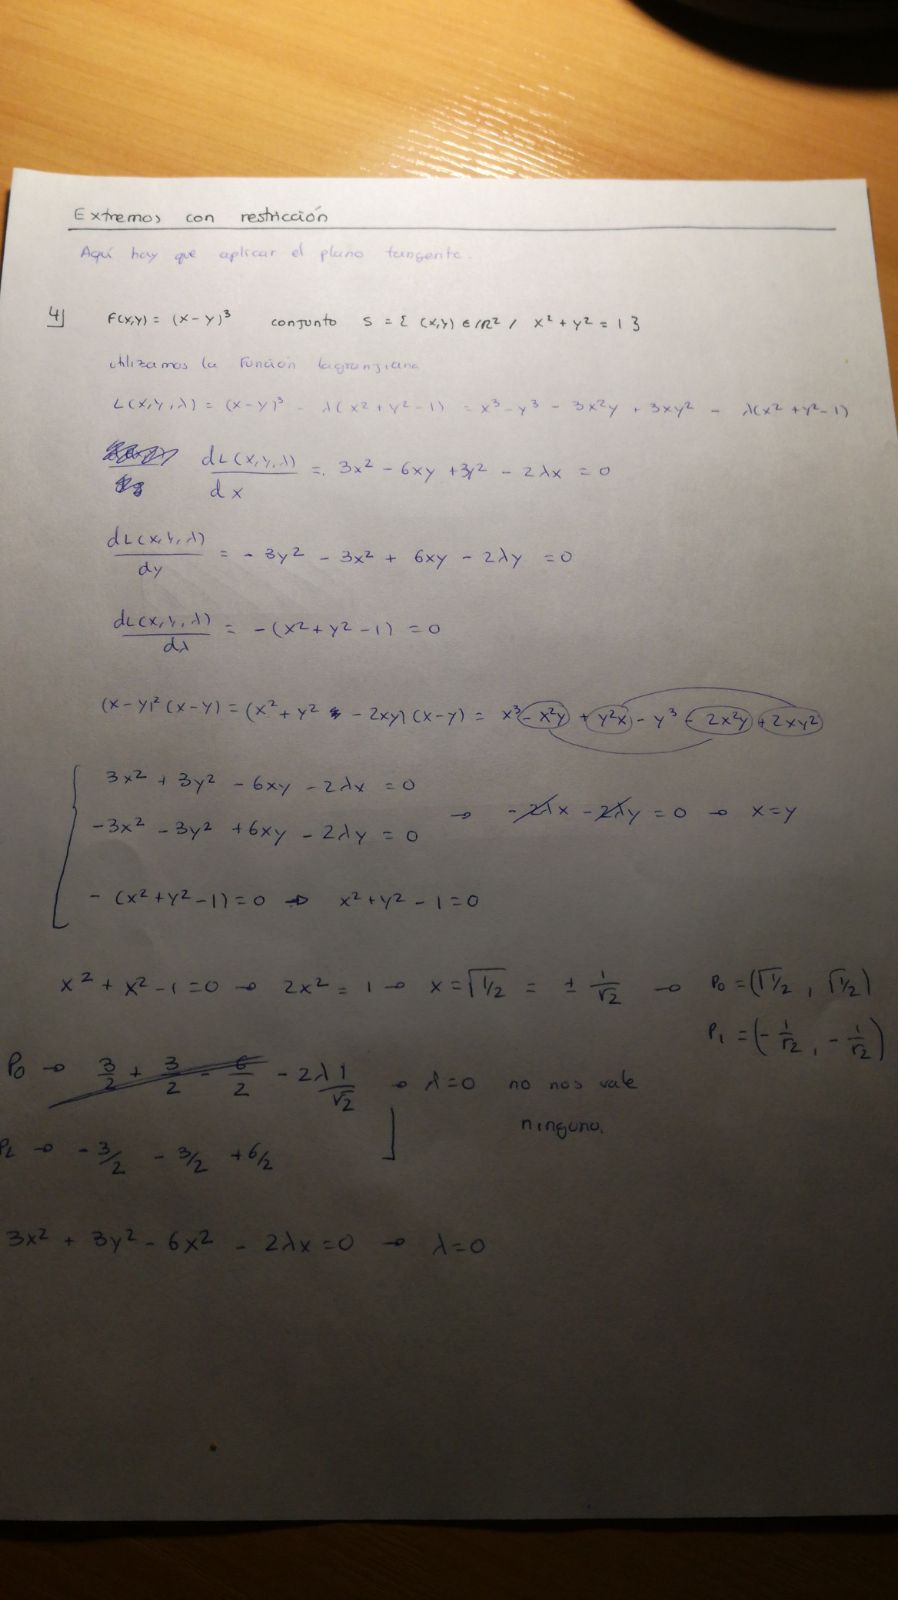 Extremos con restricción
Aquí hay que aplicar el plano tangente.
4) F(x,y) = (x-y)³ conjunto S = { (x,y) ∈ /R² / x² + y² = 1 }
utilizamos la Función lagrangiana
L(x,y,λ) = (x-y)³ - λ(x²+y²-1) = x³-y³ - 3x²y + 3xy² - λ(x²+y²-1)
dL(x,y,λ)/dx = 3x² - 6xy + 3y² - 2λx = 0
dL(x,y,λ)/dy = - 3y² - 3x² + 6xy - 2λy = 0
dL(x,y,λ)/dλ = -(x²+y²-1) = 0
(x-y)²(x-y) = (x²+y² - 2xy)(x-y) = x³ - x²y + y²x - y³ - 2x²y + 2xy²
3x² + 3y² - 6xy - 2λx = 0
-3x² - 3y² + 6xy - 2λy = 0 → -2λx - 2λy = 0 → x=y
- (x²+y²-1) = 0 → x²+y² - 1 = 0
x² + x² - 1 = 0 → 2x² = 1 → x = √1/2 = ± 1/√2 → P₀ = (√1/2, √1/2)
P₁ = (-1/√2, -1/√2)
P₀ → 3/2 + 3/2 - 6/2 - 2λ 1/√2 → λ=0 no nos vale
ninguno.
→ -3/2 - 3/2 + 6/2
3x² + 3y² - 6x² - 2λx = 0 → λ=0